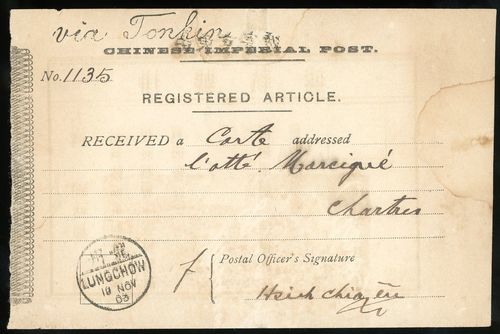 via Tonkin
CHINESE IMPERIAL POST.
No. 1135
REGISTERED ARTICLE.
RECEIVED a Carte addressed
Chartres
LUNGCHOW
19 NOV
03
Postal Officer's Signature
Hsieh